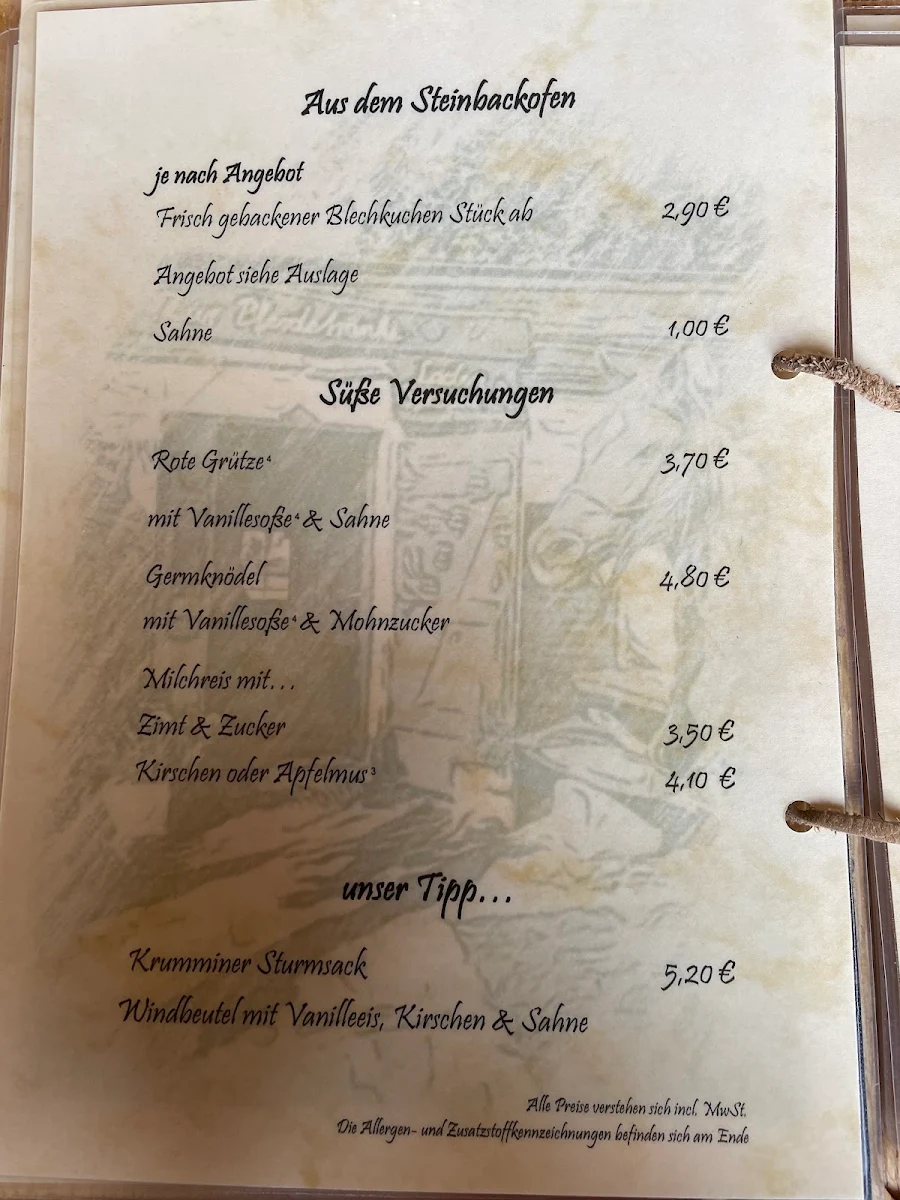 Aus dem Steinbackofen
je nach Angebot
Frisch gebackener Blechkuchen Stück ab 2,90 €
Angebot siehe Auslage
Sahne 1,00 €
Süße Versuchungen
Rote Grütze⁴ 3,70 €
mit Vanillesoße⁴ & Sahne
Germknödel 4,80 €
mit Vanillesoße⁴ & Mohnzucker
Milchreis mit...
Zimt & Zucker 3,50 €
Kirschen oder Apfelmus³ 4,10 €
unser Tipp...
Krumminer Sturmsack 5,20 €
Windbeutel mit Vanilleeis, Kirschen & Sahne
Alle Preise verstehen sich incl. MwSt.
Die Allergen- und Zusatzstoffkennzeichnungen befinden sich am Ende